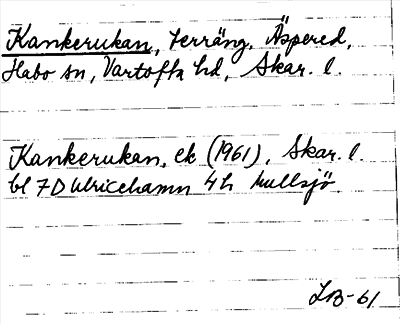 Kankerukan, terräng, Äspered,
Habo sn, Vartofta hd, Skar. l.
Kankerukan, ek (1961), Skar. l.
bl 7D Ulricehamn 4h Mullsjö
LB-61